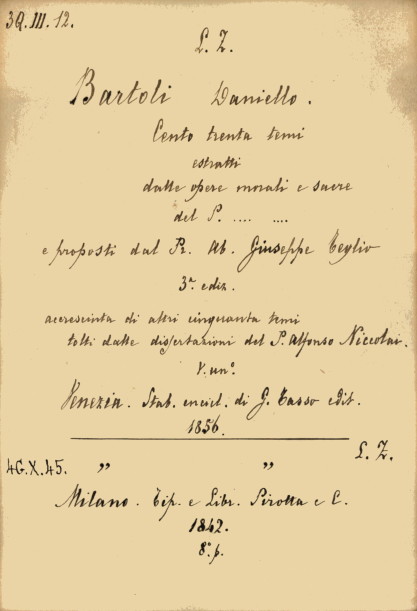 3Q.III.12.
L. Z.
Bartoli Daniello.
Cento trenta temi
estratti
dalle opere morali e sacre
del P. .... ....
e proposti dal Pr. Ab. Giuseppe Teglio
3ª ediz.
accresciuta di altri cinquanta temi
tolti dalle dissertazioni del P. Alfonso Niccolai.
V. unº.
Venezia. Stab. encicl. di G. Tasso edit.
1856.
L. Z.
4G.X.45. " "
Milano. Tip. e Libr. Pirotta e C.
1842.
8º p.